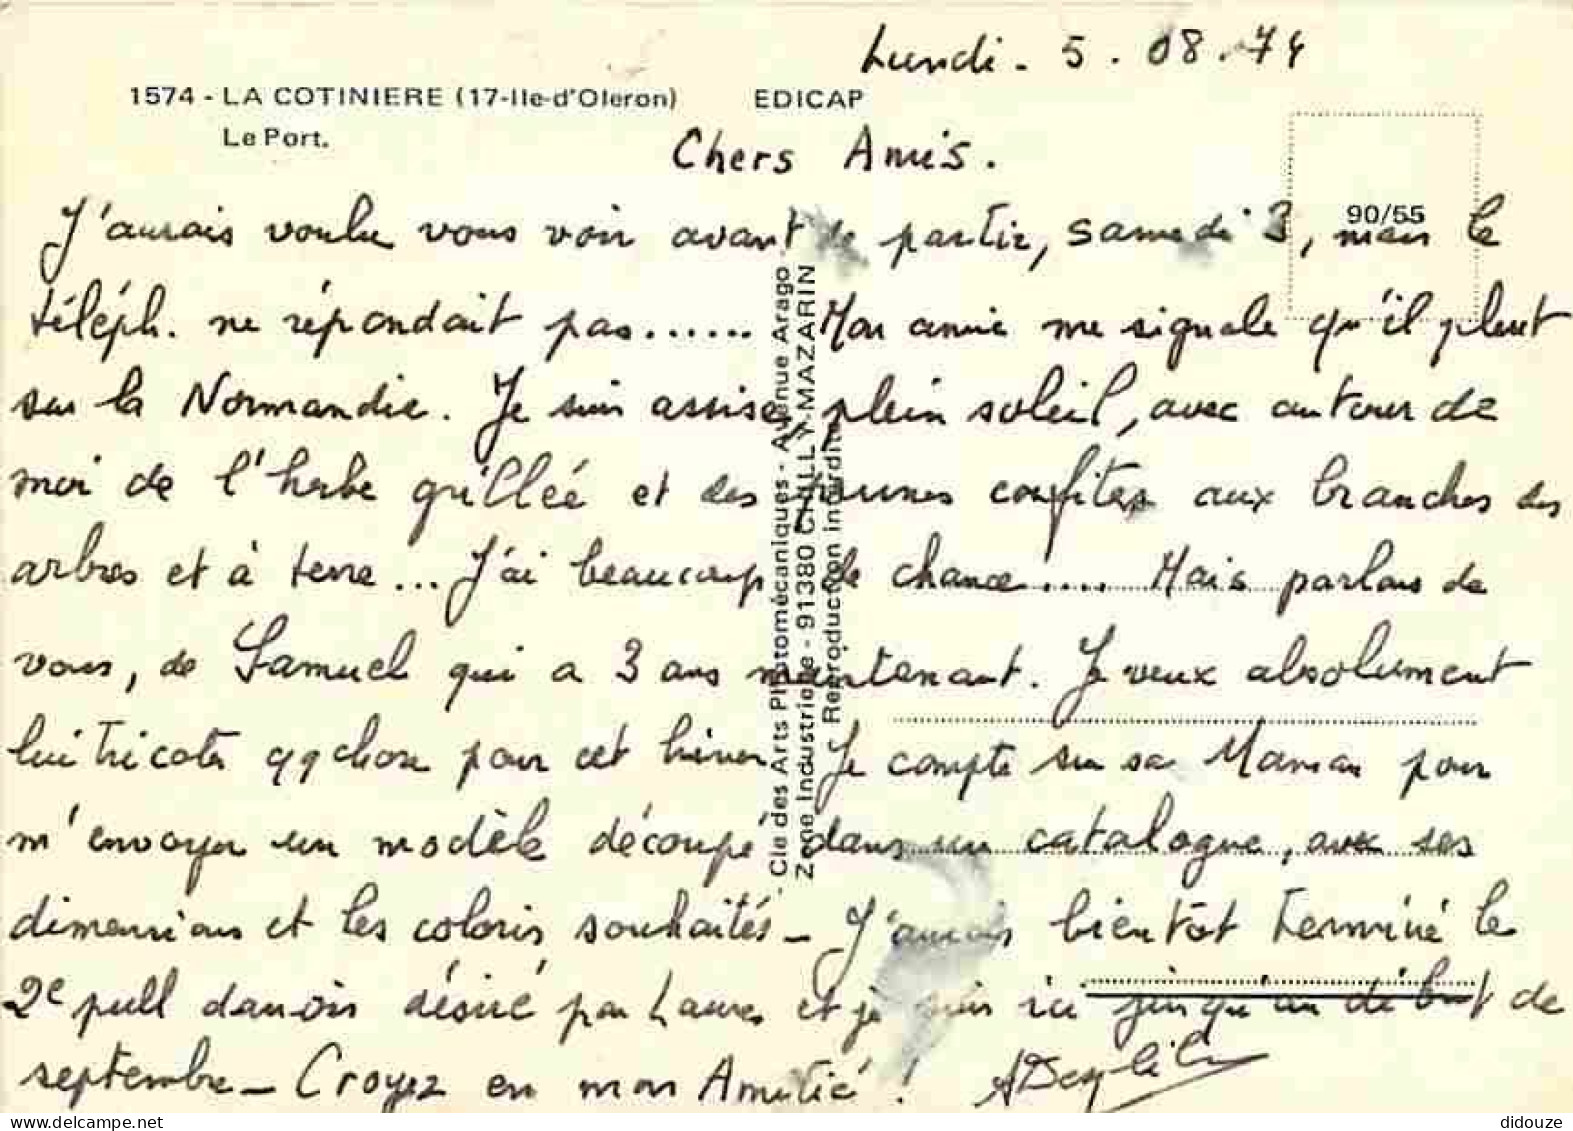 Lundi - 5 . 08 . 74
1574 - LA COTINIERE (17-Ile-d'Oleron) EDICAP
Le Port.
Chers Amis.
90/55
J'aurais voulu vous voir avant de partir, samedi 3, mais le
téléph. ne répondait pas...... Mon amie me signale qu'il pleut
sur la Normandie. Je suis assise plein soleil, avec autour de
moi de l'herbe grillée et des prunes confites aux branches des
arbres et à terre... J'ai beaucoup de chance..... Mais parlons de
vous, de Samuel qui a 3 ans maintenant. Je veux absolument
lui tricoter qqchose pour cet hiver. Je compte sur sa Maman pour
m'envoyer un modèle découpé dans un catalogue, avec ses
dimensions et les coloris souhaités - J'aurais bientôt terminé le
2e pull danois désiré par Laure, et je suis ici jusqu'au début de
septembre - Croyez en mon Amitié !
Cie des Arts Photomécaniques - Avenue Arago -
Zone Industrielle - 91380 CHILLY-MAZARIN
Reproduction interdite
didouze